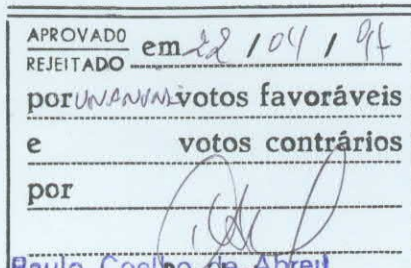 APROVADO
REJEITADO em 22 / 04 / 94
por UNANIM votos favoráveis
e votos contrários
por
Paulo Coelho de Abreu